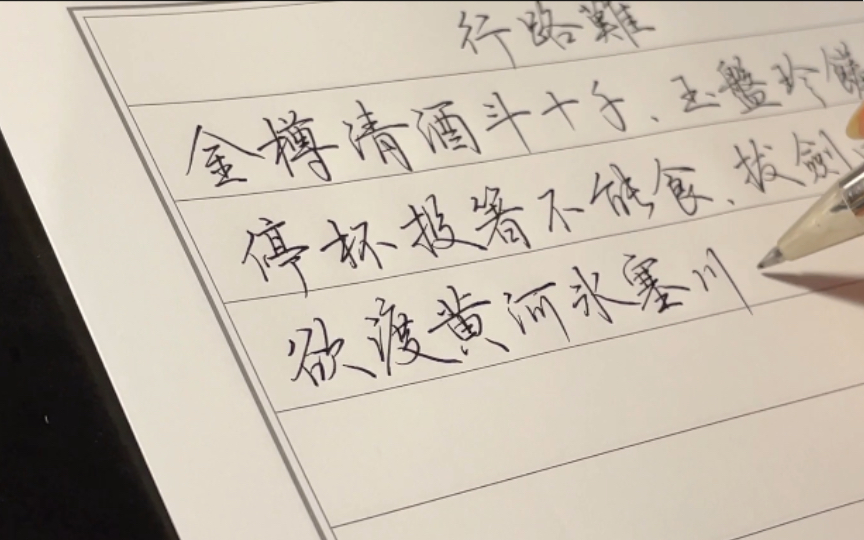 行路難
金樽清酒斗十千、玉盤珍
停杯投箸不能食、拔劍
欲渡黄河冰塞川